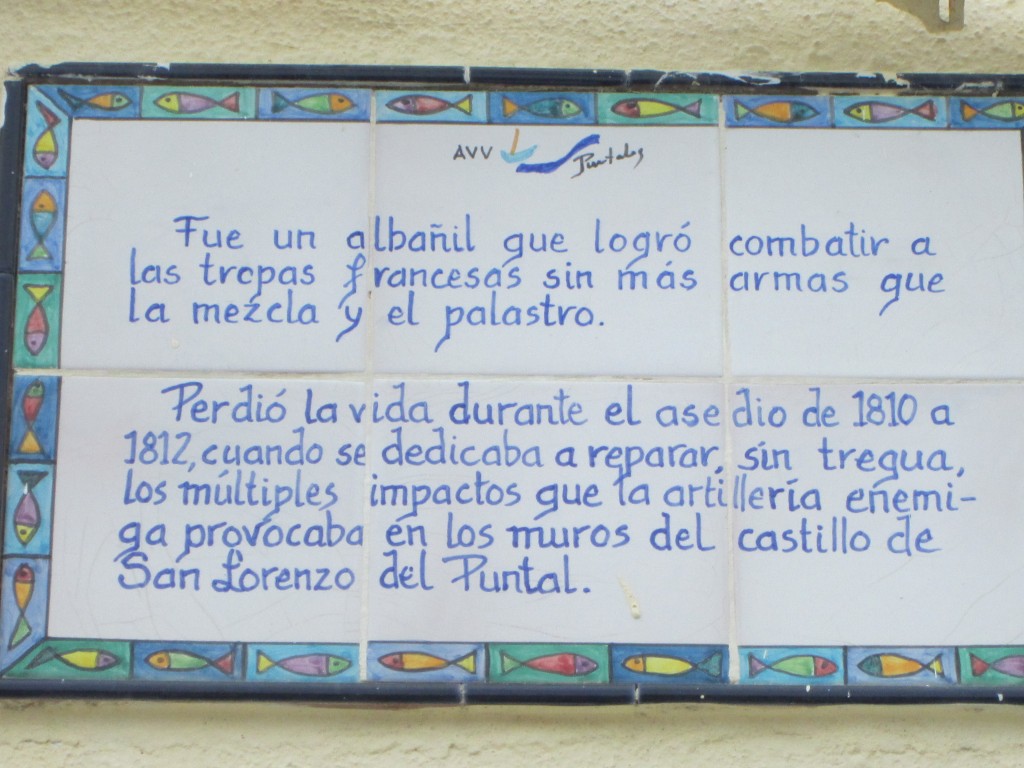 AVV Puntales
Fue un albañil que logró combatir a
las tropas francesas sin más armas que
la mezcla y el palastro.
Perdió la vida durante el asedio de 1810 a
1812, cuando se dedicaba a reparar, sin tregua,
los múltiples impactos que la artillería enemi-
ga provocaba en los muros del castillo de
San Lorenzo del Puntal.